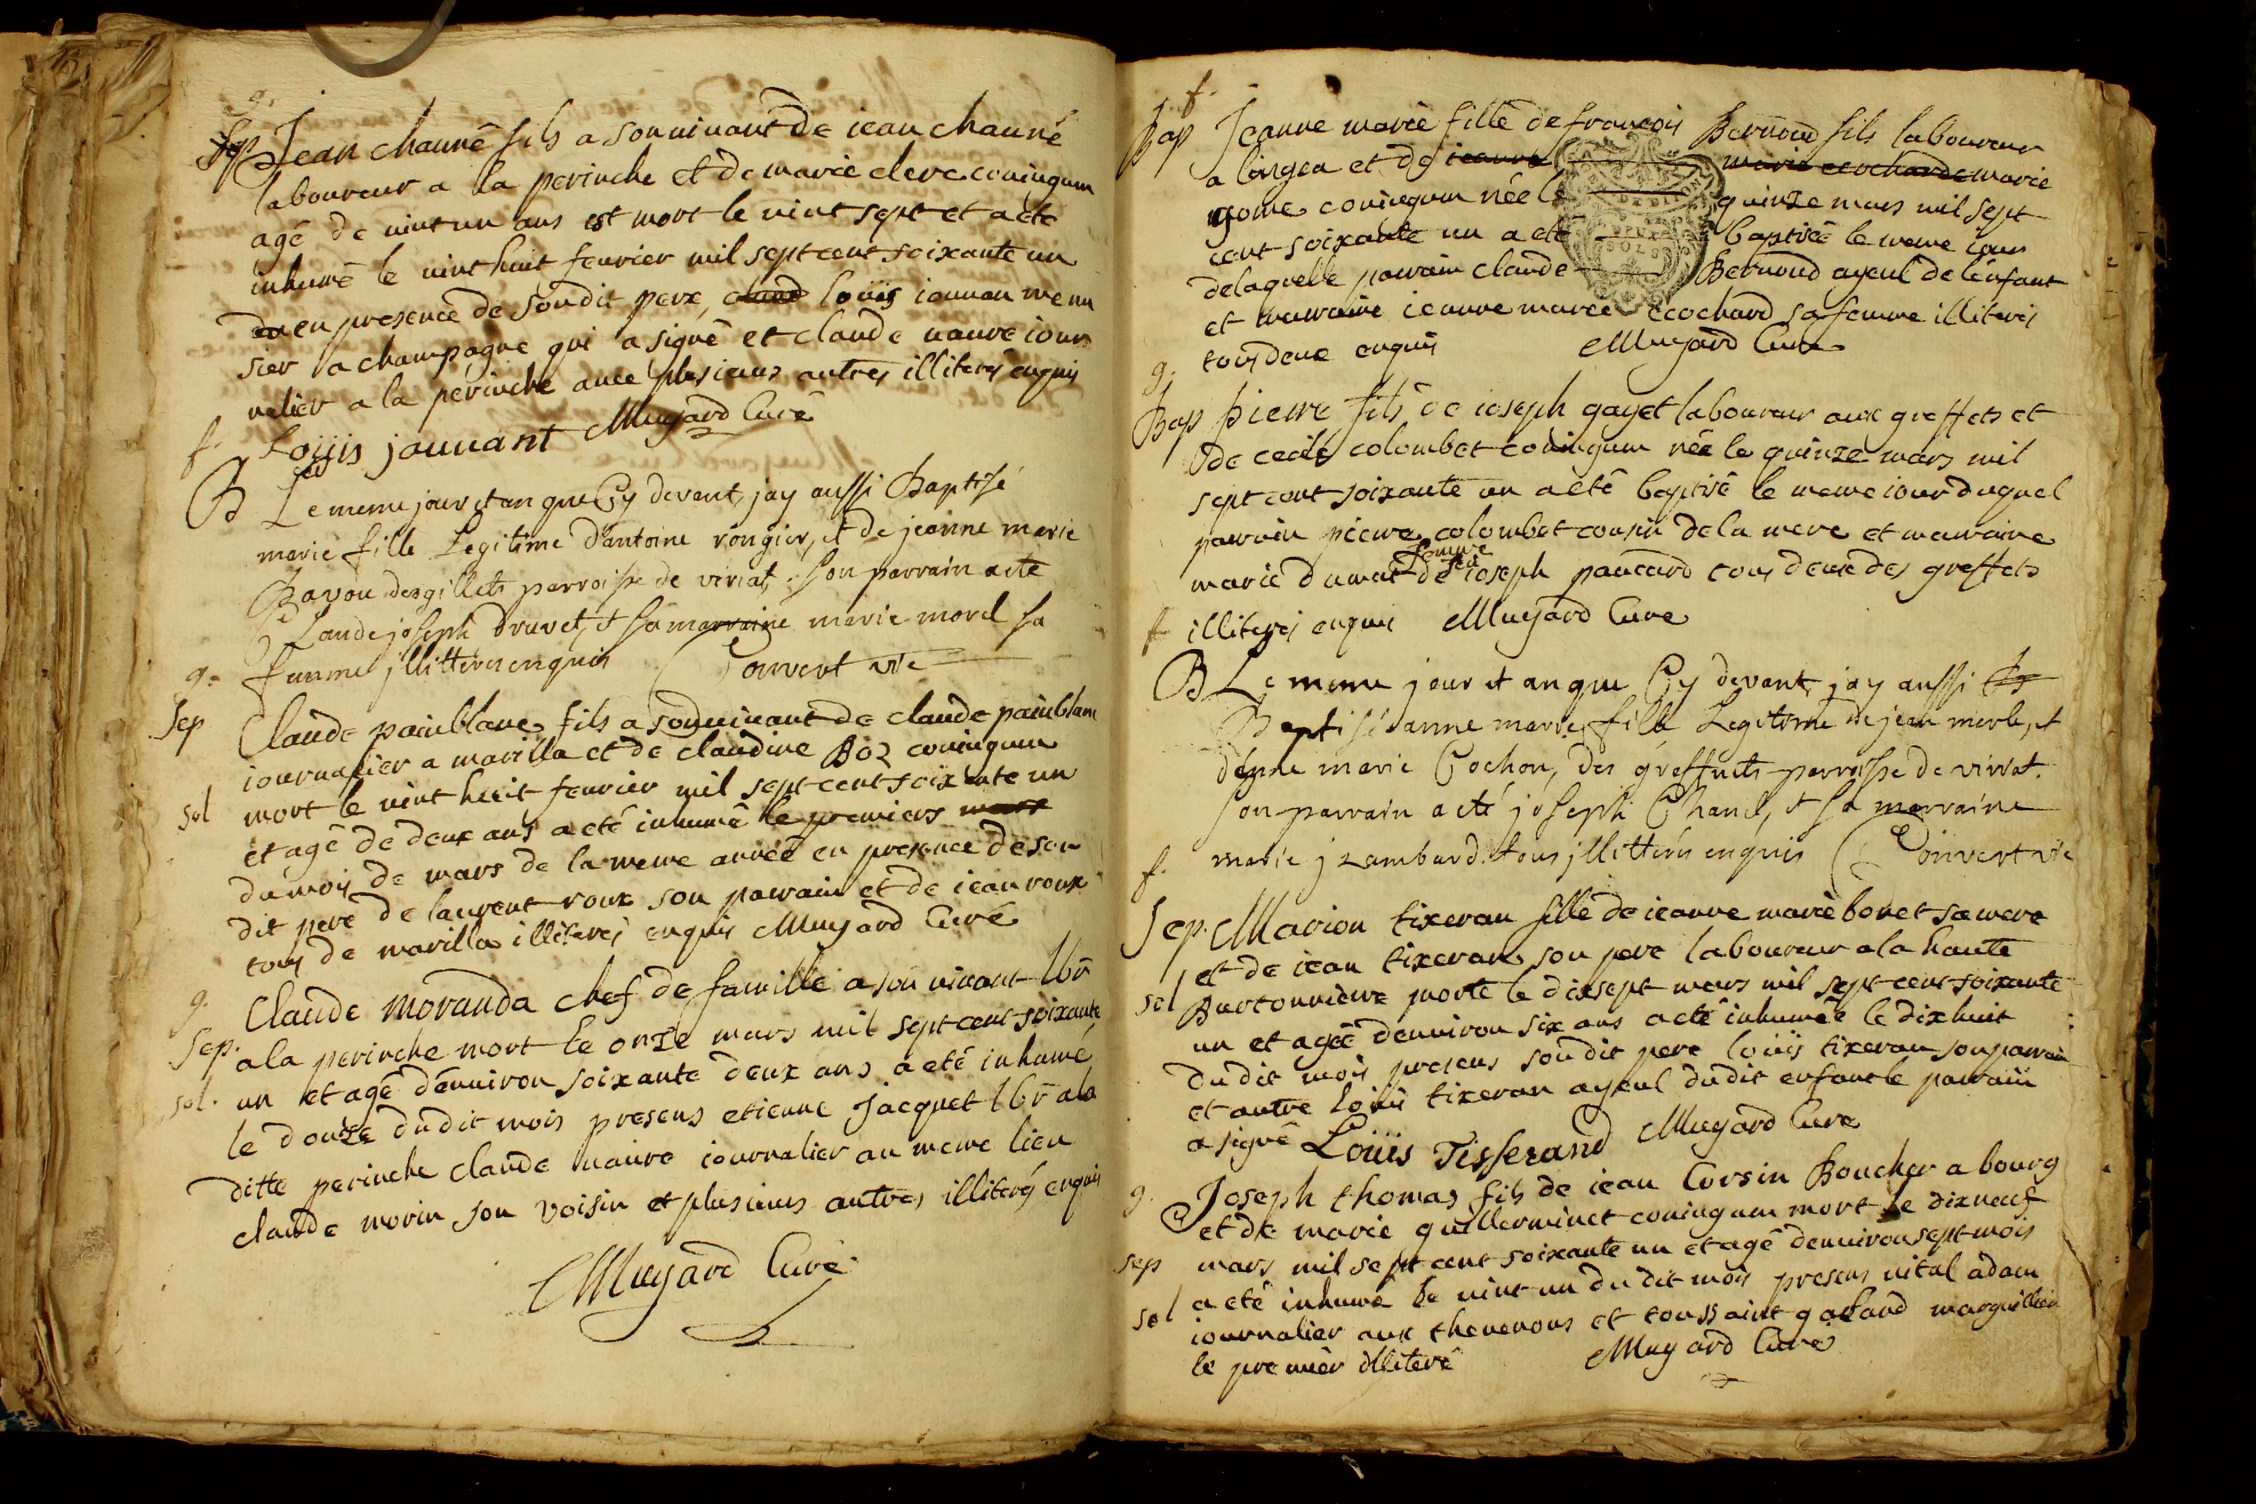 g.
Sep Jean chauné fils a son vivant de iean chauné
laboureur a la perinche et de marie clerc coniugum
agé de vint un ans est mort le vint sept et a eté
inhumé le vint huit fevrier mil sept cent soixante un
en presence de son dit pere, loüis iouvan menu
sier a champagne qui a signé et claude nauve iour
nalier a la perinche avec plusieurs autres illiterés enquis
Loüis jouvant Muyard Curé
f.
B Le meme jour et an que Cy devant, jay aussi Baptisé
marie fille Legitime d'antoine rongier, et de jeanne marie
Bavou des gillets parroisse de viriat, son parrain a eté
Claude joseph druvet, et sa marraine marie morel sa
femme jllitterés enquis Convert vic
g.
Sep Claude painblanc fils a son vivant de claude painblanc
iournalier a marilla et de claudine Boz coniugum
sol mort le vint huit fevrier mil sept cent soixante un
et agé de deux ans a eté inhumé le premiers mars
du mois de mars de la meme année en presence de son
dit pere de laurent roux son parrain et de iean roux
tous de marilla illiterés enquis Muyard Curé
g.
Claude Moranda chef de famille a son vivant lbr
Sep. a la perinche mort le onze mars mil sept cent soixante
sol. un et agé d'environ soixante deux ans a eté inhumé
le douze du dit mois presens etienne Jacquet lbr a la
ditte perinche claude nauve iournalier au meme lieu
claude morin son voisin et plusieurs autres illiterés enquis
Muyard Curé
f.
Bap Jeanne marie fille de francois Bernoud fils laboureur
a lingea et de ieanne marie ecochard marie
gome coniugum née le quinze mars mil sept
cent soixante un a eté baptisée le meme iour
de laquelle parrain claude Bernoud ayeul de l'enfant
et marraine ieanne marie ecochard sa femme illiterés
tous deux enquis Muyard Curé
g.
Bap pierre fils de ioseph gayet laboureur aux greffets et
de cecile colombet coniugum née le quinze mars mil
sept cent soixante un a eté baptisé le meme iour duquel
parrain pierre colombet cousin de la mere et marraine
marie dumat femme de ioseph paucard tous deux des greffets
illiterés enquis Muyard Curé
f
B Le meme jour et an que Cy devant, jay aussi
Baptisé anne marie fille Legitime de jean merle, et
d'anne marie Cochon, des greffuets parroisse de viriat.
son parrain a eté joseph Chanel, et sa marraine
marie jzambard. tous jllitterés enquis Convert vic
f.
Sep. Marion tixeran fille de ieanne marie bonet sa mere
et de iean tixeran son pere laboureur a la haute
sol Burtonniere morte le dixsept mars mil sept cent soixante
un et agée d'environ six ans a eté inhumée le dix huit
du dit mois presens son dit pere loüis tixeran son parrain
et autre loüis tixeran ayeul du dit enfant le parrain
a signé Loüis Tisserand Muyard Curé
g.
Joseph thomas fils de iean Corsin Boucher a bourg
et de marie guillerminet coniugum mort le dixneuf
sep mars mil sept cent soixante un et agé d'environ sept mois
a eté inhumé le vint un du dit mois presens vital adam
sol iournalier aux thevenons et toussaint gaband marguillier
le premier illiteré Muyard Curé